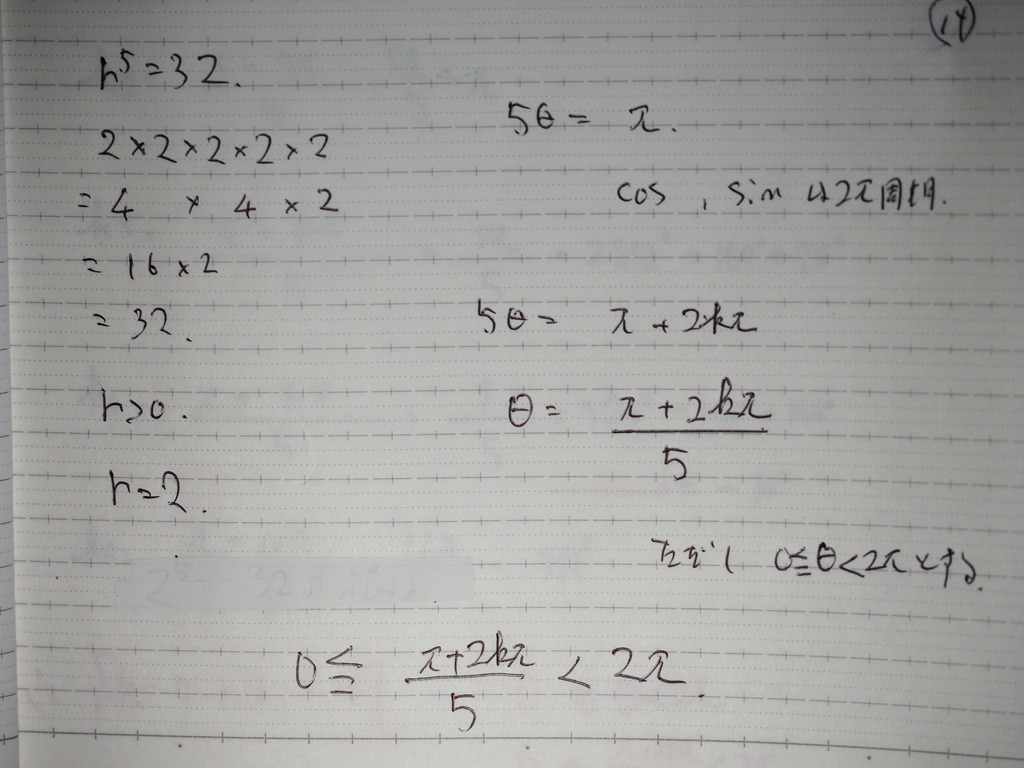 14
r⁵=32.
2×2×2×2×2
=4 × 4 × 2
= 16×2
= 32.
r>0.
r=2.
5θ= π.
cos , sin は2π周期.
5θ= π+2kπ
θ= (π+2kπ)/5
ただし 0≦θ<2πとする.
0≦ (π+2kπ)/5 < 2π.